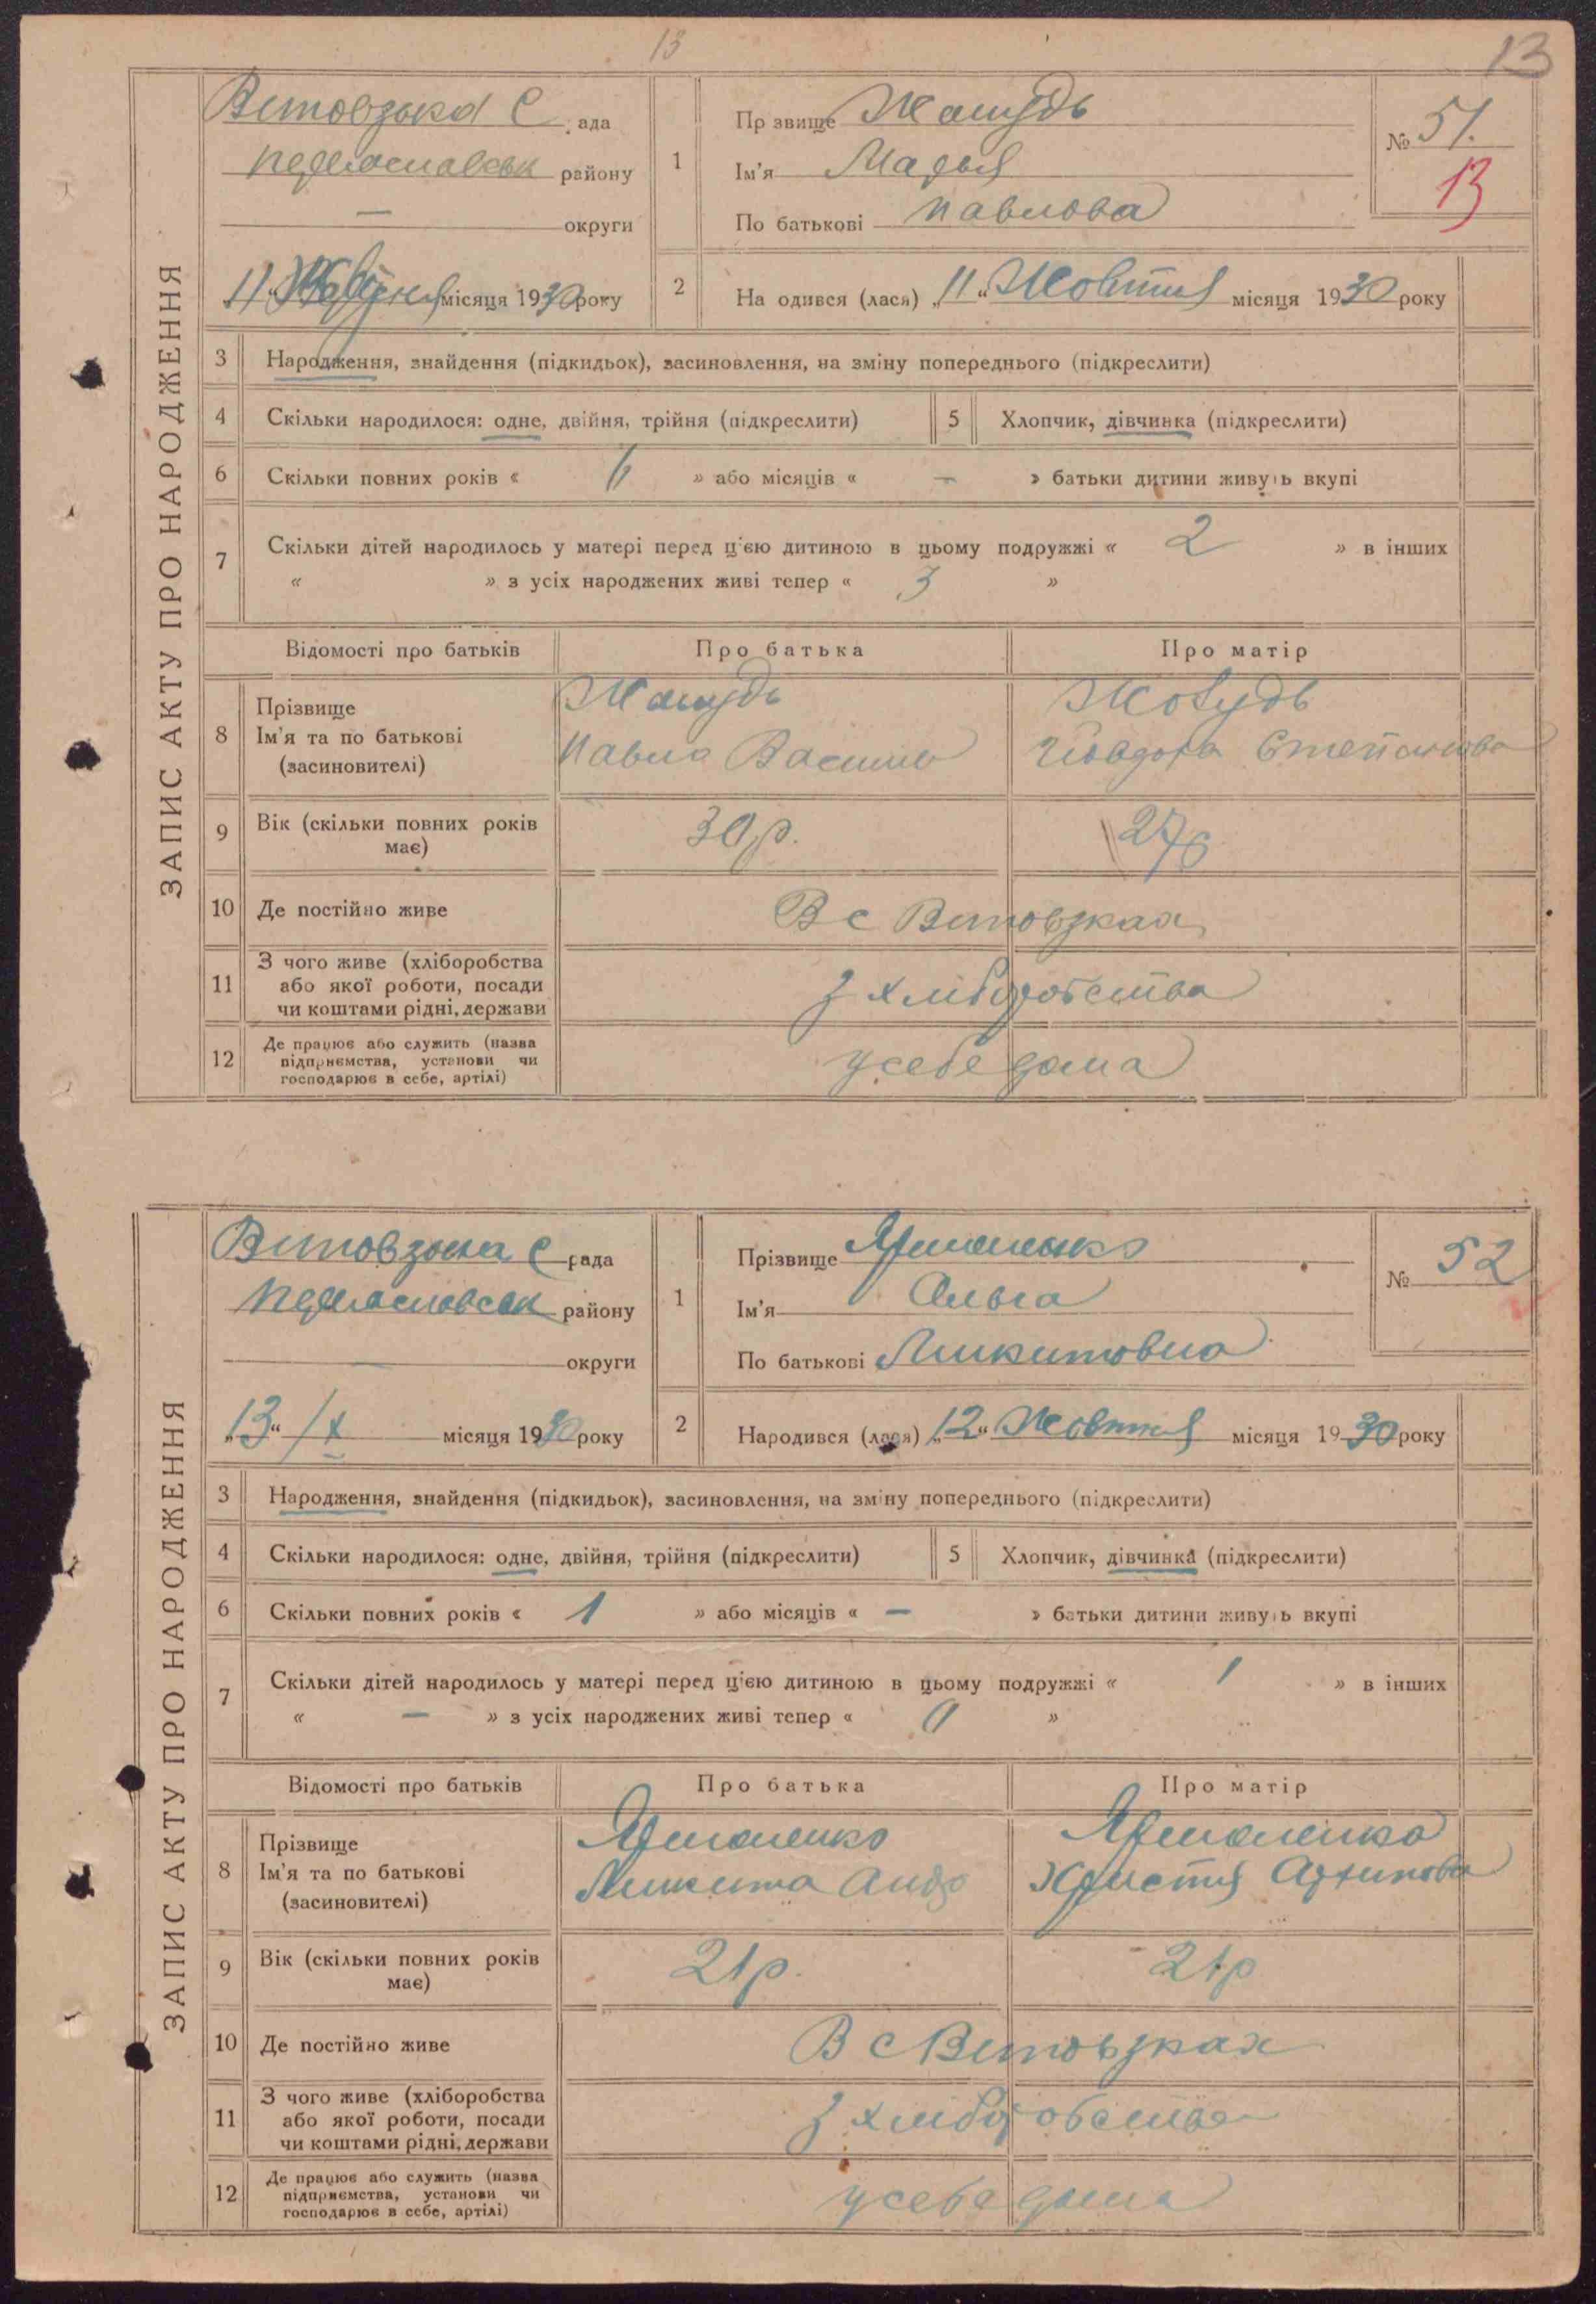 13
13
ЗАПИС АКТУ ПРО НАРОДЖЕННЯ
С ада
району
— округи
"11" місяця 1930 року
1
Пр звище
Ім'я Марья
По батькові Павлова
№ 51.
13
2
На одився (лася) "11" Жовтня місяця 1930 року
3 Народження, знайдення (підкидьок), засиновлення, на зміну попереднього (підкреслити)
4 Скільки народилося: одне, двійня, трійня (підкреслити) 5 Хлопчик, дівчинка (підкреслити)
6 Скільки повних років « » або місяців « — » батьки дитини живуть вкупі
7 Скільки дітей народилось у матері перед цією дитиною в цьому подружжі « 2 » в інших
« » з усіх народжених живі тепер « 3 »
Відомості про батьків Про батька Про матір
8 Прізвище
Ім'я та по батькові Павло Василів Степанова
(засиновителі)
9 Вік (скільки повних років 30 р. 27 р
має)
10 Де постійно живе В с
11 З чого живе (хліборобства
або якої роботи, посади з хліборобства
чи коштами рідні, держави
12 Де працює або служить (назва
підприємства, установи чи у себе дома
господарює в себе, артілі)
ЗАПИС АКТУ ПРО НАРОДЖЕННЯ
С рада
району
— округи
"13" /X місяця 1930 року
1
Прізвище Ярмоленко
Ім'я Ольга
По батькові Микитовна
№ 52
2
Народився (лася) "12" Жовтня місяця 1930 року
3 Народження, знайдення (підкидьок), засиновлення, на зміну попереднього (підкреслити)
4 Скільки народилося: одне, двійня, трійня (підкреслити) 5 Хлопчик, дівчинка (підкреслити)
6 Скільки повних років « 1 » або місяців « — » батьки дитини живуть вкупі
7 Скільки дітей народилось у матері перед цією дитиною в цьому подружжі « 1 » в інших
« — » з усіх народжених живі тепер « »
Відомості про батьків Про батька Про матір
8 Прізвище Ярмоленко Ярмоленко
Ім'я та по батькові Микита Андр Христя Архипова
(засиновителі)
9 Вік (скільки повних років 21 р. 21 р
має)
10 Де постійно живе В с Витовзках
11 З чого живе (хліборобства
або якої роботи, посади з хліборобства
чи коштами рідні, держави
12 Де працює або служить (назва
підприємства, установи чи у себе дома
господарює в себе, артілі)